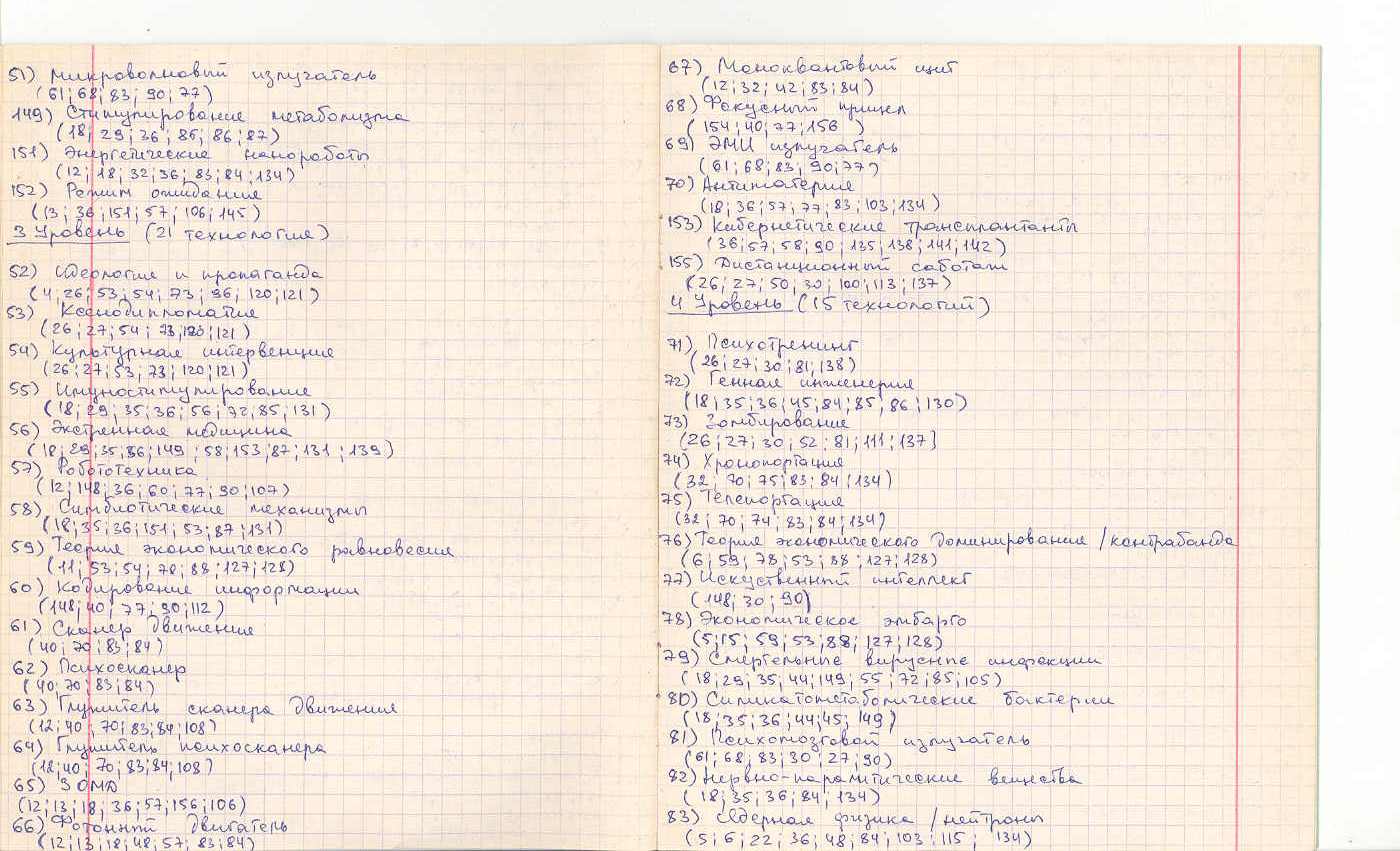 51) Микроволновый излучатель
(61; 68; 83; 90; 77)
149) Стимулирование метаболизма
(18; 29; 36; 85; 86; 87)
151) Энергетические нанороботы
(12; 18; 32; 36; 83; 84; 134)
152) Режим ожидания
(13; 36; 151; 57; 106; 145)
3 Уровень (21 технология)
52) Идеология и пропаганда
(4; 26; 53; 54; 73; 96; 120; 121)
53) Ксенодипломатия
(26; 27; 54; 73; 120; 121)
54) Культурная интервенция
(26; 27; 53; 73; 120; 121)
55) Имуностимулирование
(18; 29; 35; 36; 56; 72; 85; 131)
56) Экстренная медицина
(18; 29; 35; 36; 149; 58; 153; 87; 131; 139)
57) Робототехника
(12; 148; 36; 60; 77; 90; 107)
58) Симбиотические механизмы
(18; 35; 36; 151; 53; 87; 131)
59) Теория экономического равновесия
(11; 53; 54; 78; 88; 127; 128)
60) Кодирование информации
(148; 40; 77; 90; 112)
61) Сканер движения
(40; 70; 83; 84)
62) Психосканер
(40; 70; 83; 84)
63) Глушитель сканера движения
(12; 40; 70; 83; 84; 108)
64) Глушитель психосканера
(12; 40; 70; 83; 84; 108)
65) ЗОМД
(12; 13; 18; 36; 57; 156; 106)
66) Фотонный двигатель
(12; 13; 18; 48; 57; 83; 84)
67) Моноквантовый щит
(12; 32; 42; 83; 84)
68) Фокусный прицел
(154; 40; 77; 156)
69) ЭМИ излучатель
(61; 68; 83; 90; 77)
70) Антиматерия
(18; 36; 57; 77; 83; 103; 134)
153) Кибернетические трансплантанты
(36; 57; 58; 90; 135; 138; 141; 142)
155) Дистанционный саботаж
(26; 27; 50; 30; 100; 113; 137)
4 Уровень (15 технологий)
71) Психотренинг
(26; 27; 30; 81; 138)
72) Генная инженерия
(18; 35; 36; 45; 84; 85; 86; 130)
73) Зомбирование
(26; 27; 30; 52; 81; 111; 137)
74) Хронопортация
(32; 70; 75; 83; 84; 134)
75) Телепортация
(32; 70; 74; 83; 84; 134)
76) Теория экономического доминирования / контрабанда
(6; 59; 78; 53; 88; 127; 128)
77) Искуственный интеллект
(148; 30; 90)
78) Экономическое эмбарго
(5; 15; 59; 53; 88; 127; 128)
79) Смертельные вирусные инфекции
(18; 29; 35; 44; 149; 55; 72; 85; 105)
80) Силикатометаболические бактерии
(18; 35; 36; 44; 45; 149)
81) Психомозговой излучатель
(61; 68; 83; 30; 27; 90)
82) Нервно-паралитические вещества
(18; 35; 36; 84; 134)
83) Ядерная физика / нейтроны
(5; 6; 22; 36; 48; 84; 103; 115; 134)